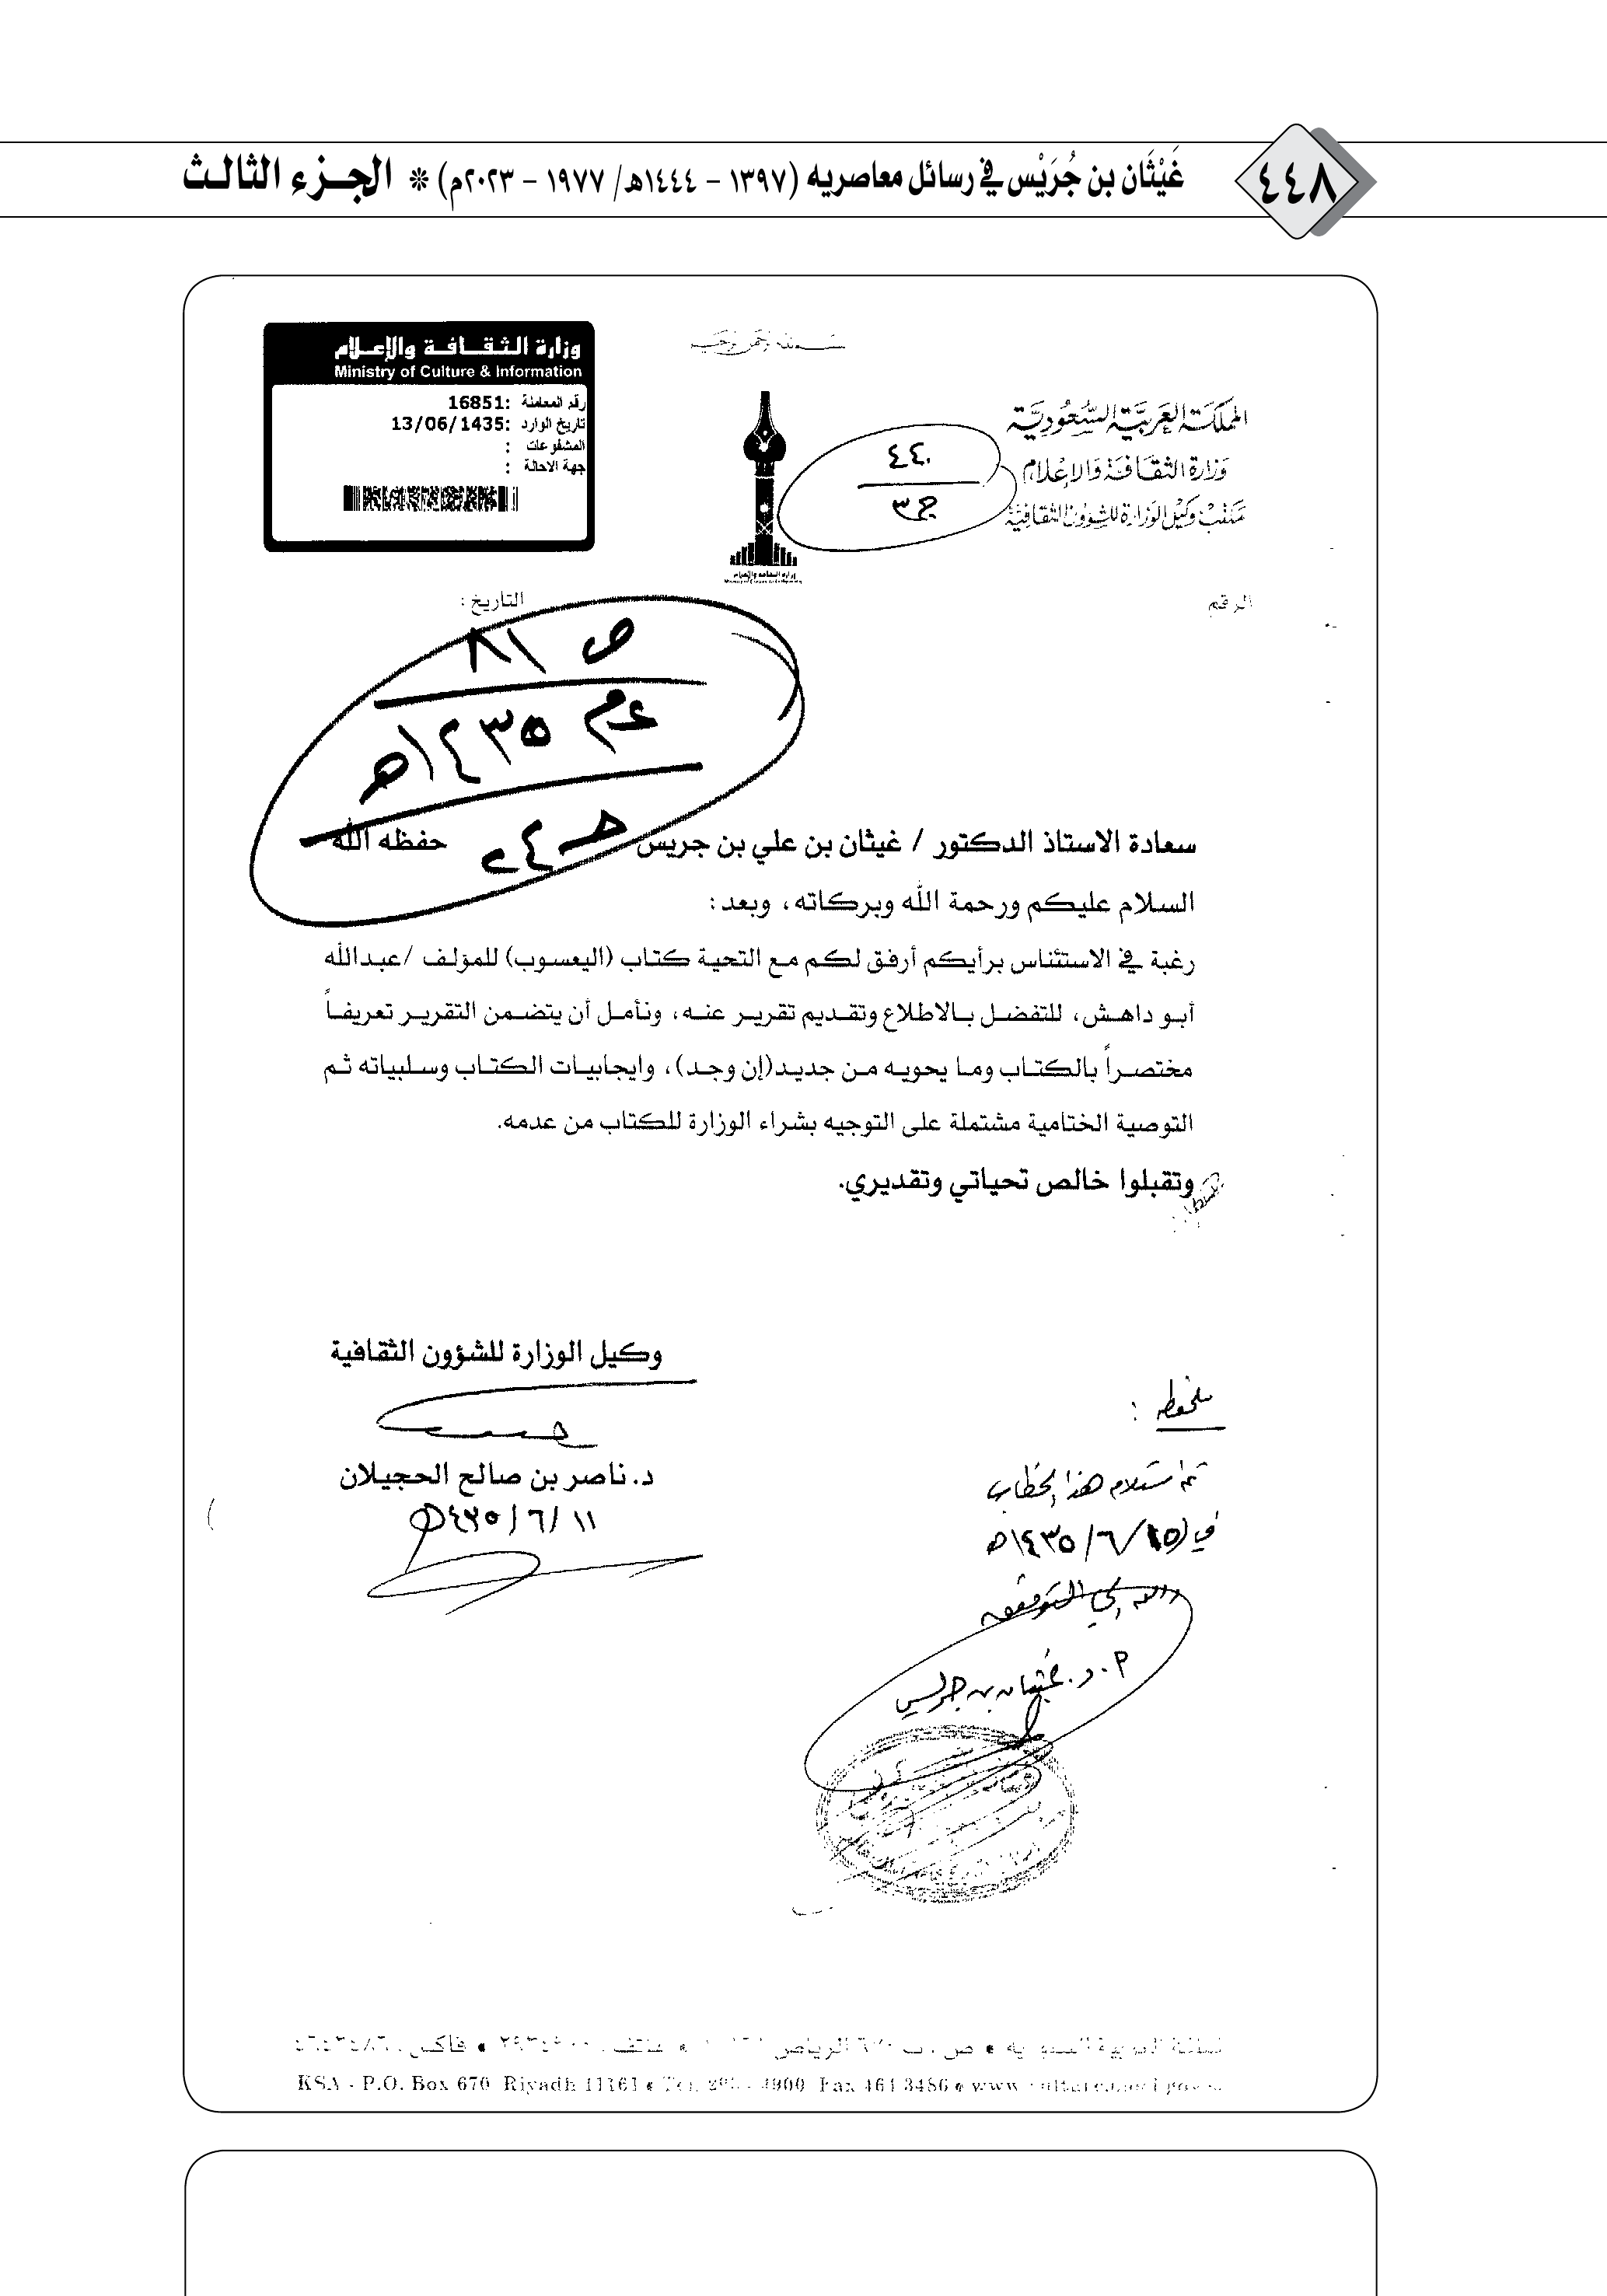 ٤٤٨
غَيْثَان بن جُرَيْس في رسائل معاصريه (١٣٩٧ - ١٤٤٤هـ/ ١٩٧٧ - ٢٠٢٣م) * الجزء الثالث
المملكة العربية السعودية
وزارة الثقافة والإعلام
مكتب وكيل الوزارة للشؤون الثقافية
٤٤٠
ج٣
وزارة الثقافة والإعلام
Ministry of Culture & Information
رقم المعاملة :16851
تاريخ الوارد :13/06/1435
المشفوعات :
جهة الاحالة :
الرقم
التاريخ :
ص ٨١
١٤٣٥هـ
سعادة الاستاذ الدكتور / غيثان بن علي بن جريس حفظه الله
السلام عليكم ورحمة الله وبركاته، وبعد:
رغبة في الاستئناس برأيكم أرفق لكم مع التحية كتاب (اليعسوب) للمؤلف /عبدالله
أبو داهش، للتفضل بالاطلاع وتقديم تقرير عنه، ونأمل أن يتضمن التقرير تعريفاً
مختصراً بالكتاب وما يحويه من جديد(إن وجد)، وايجابيات الكتاب وسلبياته ثم
التوصية الختامية مشتملة على التوجيه بشراء الوزارة للكتاب من عدمه.
وتقبلوا خالص تحياتي وتقديري.
وكيل الوزارة للشؤون الثقافية
د. ناصر بن صالح الحجيلان
١١/ ٦/ ١٤٣٥هـ
ملحوظة :
تم استلام هذا الخطاب
في ١٥/ ٦/ ١٤٣٥هـ
والله ولي التوفيق
أ. د. غيثان بن جريس
KSA - P.O. Box 670 Riyadh 11161 Fax 464 3486